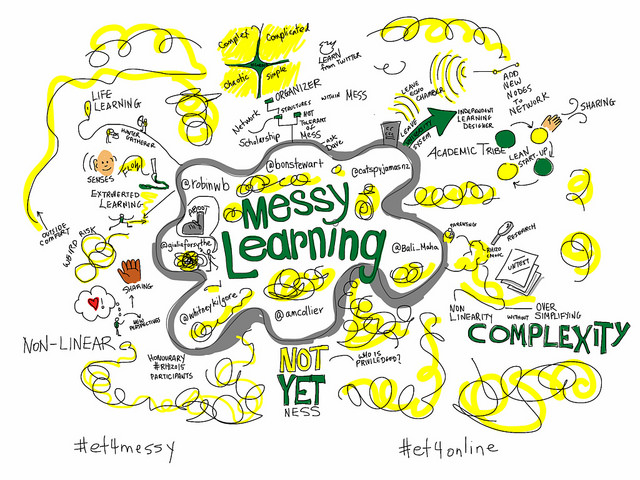 Complex
Complicated
chaotic
simple
LEARN
from TWITTER
ORGANIZER
STRUCTURES WITHIN MESS
Network
Scholarship
NOT
TOLERANT
OF
MESS
ask
Dave
LIFE
LEARNING
HUNTER
GATHERER
SENSES
FLOW
EXTROVERTED
LEARNING
OUTSIDE
COMFORT
WEIRD RISK
SHARING
NEW
PERSPECTIVES
NON-LINEAR
HONOURARY
#RHIZO15
PARTICIPANTS
@robinwb
@bonstewart
@catspyjamasnz
Messy
Learning
@giuliaforsythe
@Bali_Maha
@whitneykilgore
@amcollier
LEAVE
ECHO
CHAMBER
LEAVE
UNIVERSITY
SYSTEM
INDEPENDENT
LEARNING
DESIGNER
ADD
NEW
NODES
TO
NETWORK
SHARING
ACADEMIC TRIBE
LEAN
START-UP
PARENTING
RHIZO
RESEARCH
NON
LINEARITY
WITHOUT
OVER
SIMPLIFYING
COMPLEXITY
NOT
YET
NESS
WHO IS
PRIVILEDGED?
#et4messy
#et4online